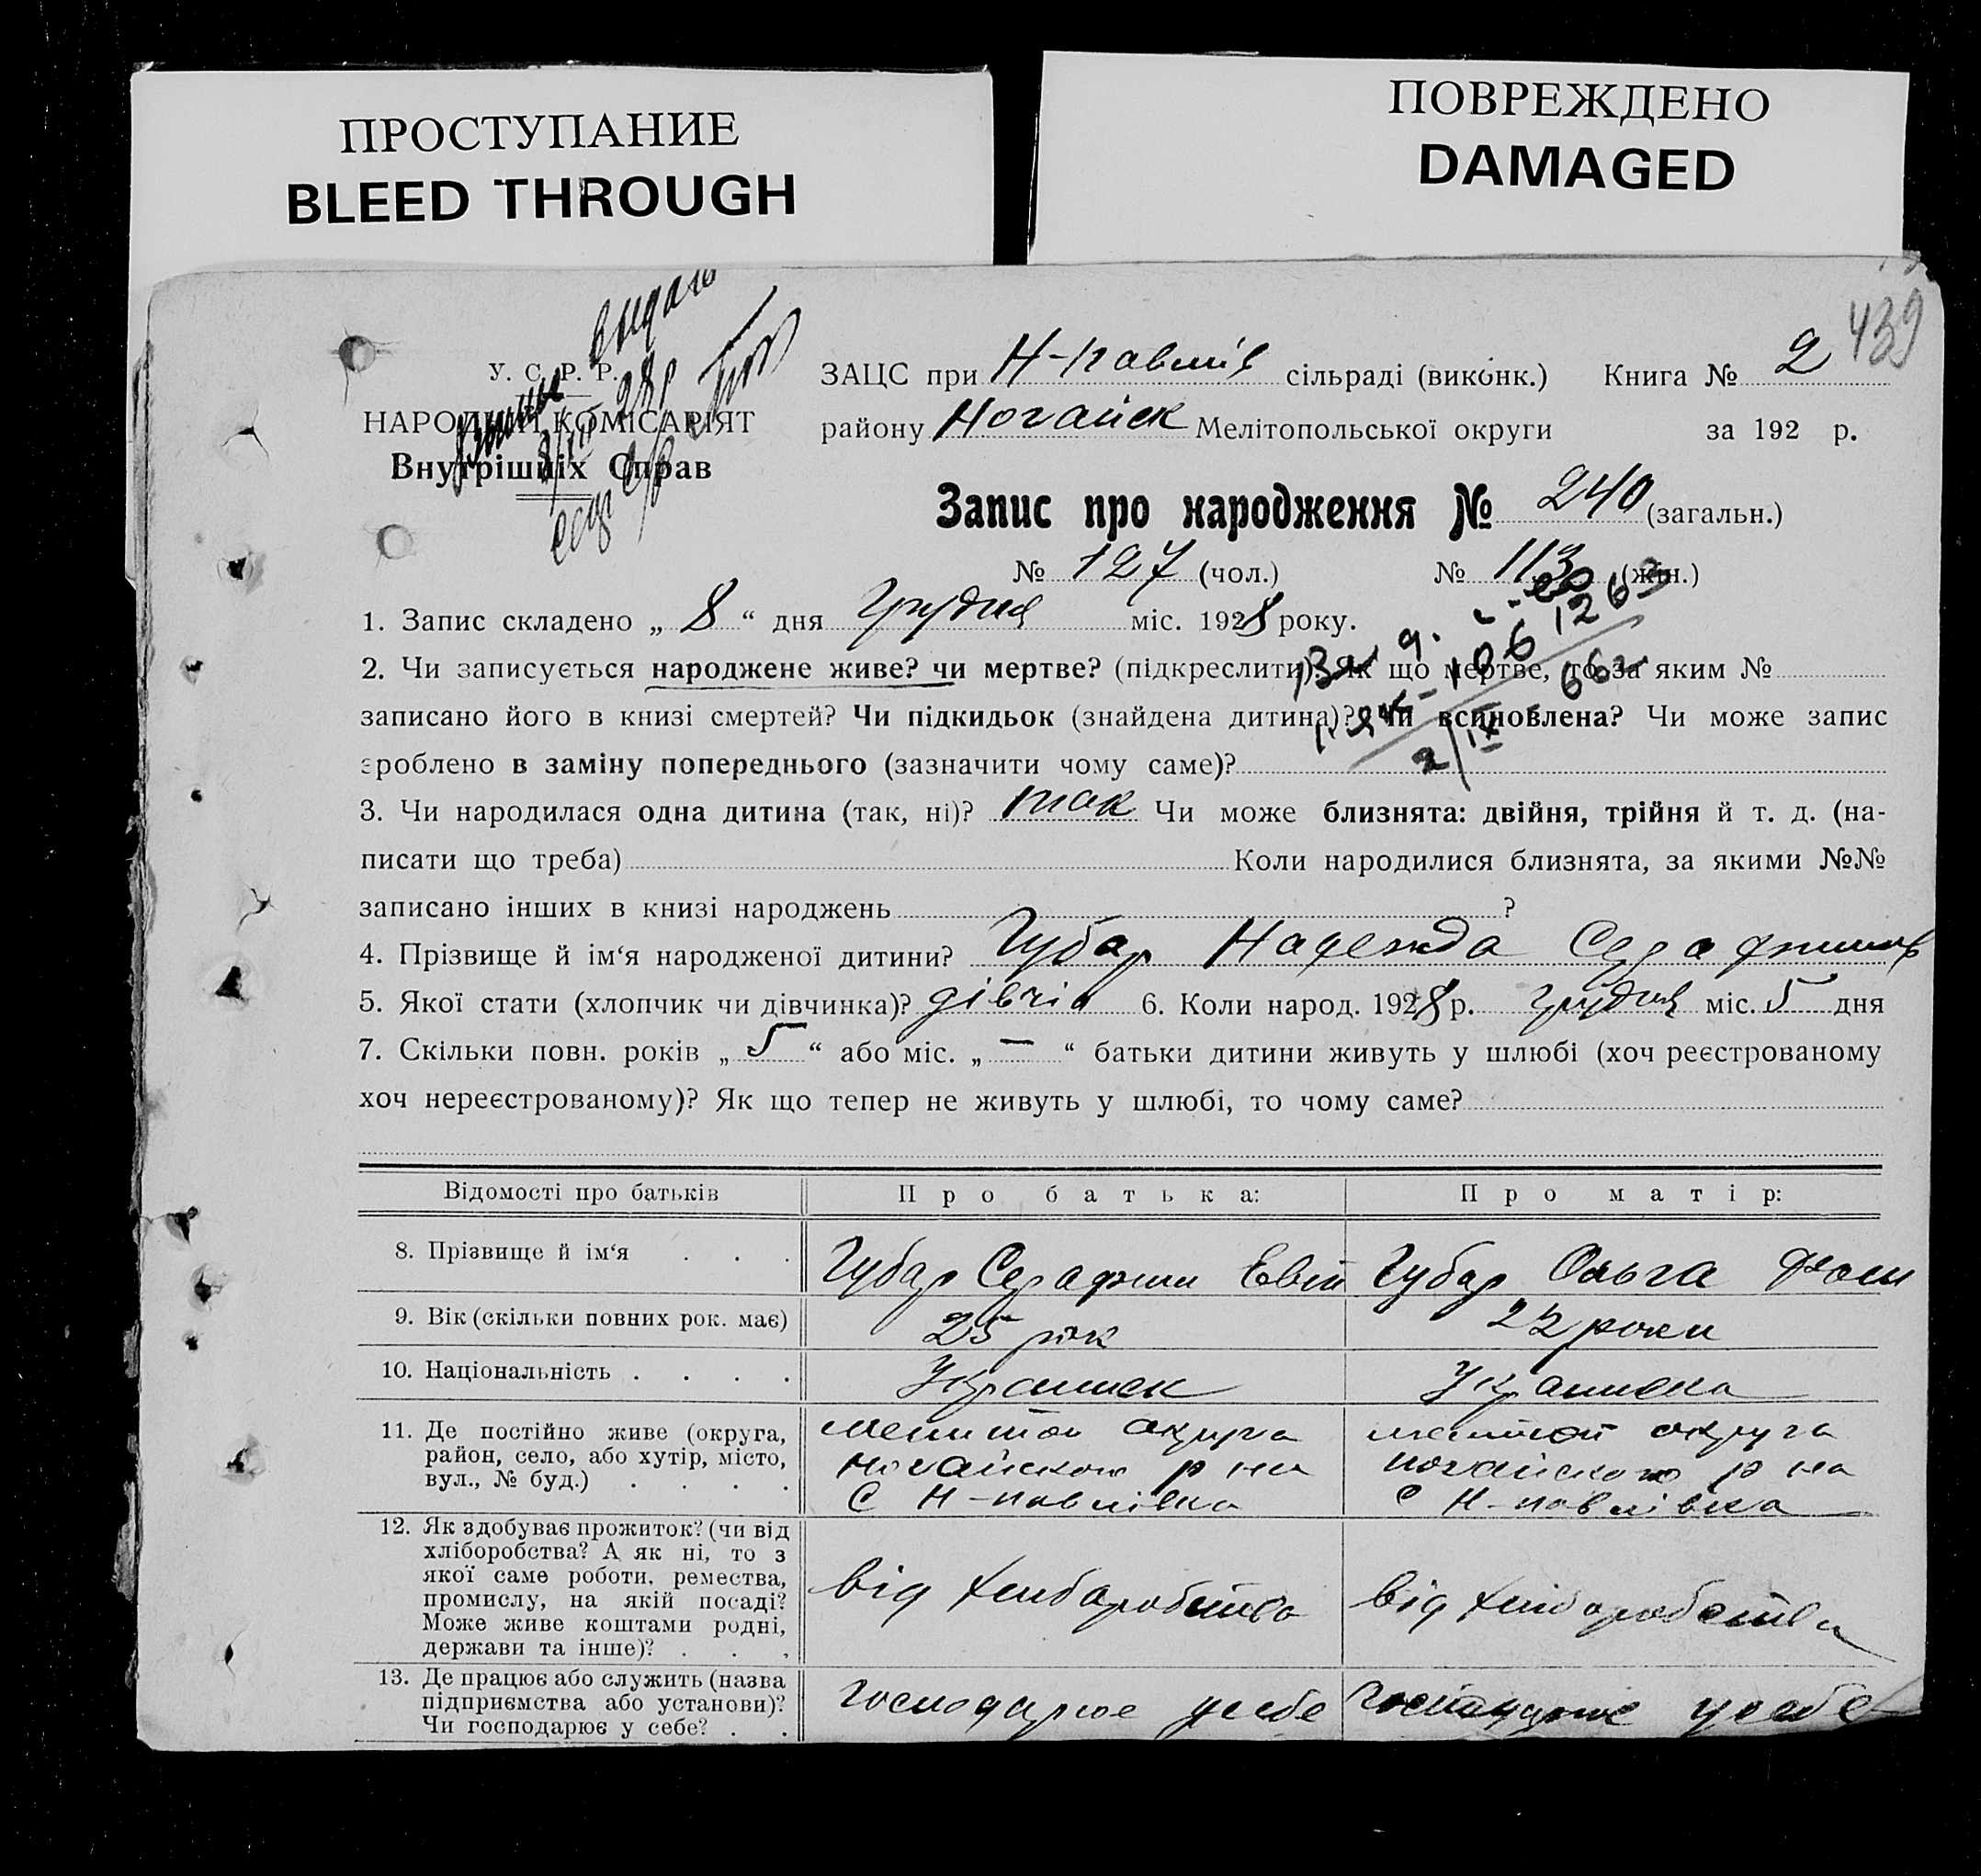 ПРОСТУПАНИЕ
BLEED THROUGH
ПОВРЕЖДЕНО
DAMAGED
439
У. С. Р. Р.
НАРОДНИЙ КОМІСАРІЯТ
Внутрішніх Справ
ЗАЦС при Н-павлів сільраді (виконк.) Книга № 2
району Ногайск Мелітопольської округи за 192 р.
Запис про народження № 240 (загальн.)
№ 127 (чол.) № 113 (жін.)
1. Запис складено „ 8 “ дня Грудня міс. 1928 року.
2. Чи записується народжене живе? чи мертве? (підкреслити). Як що мертве, то за яким №
записано його в книзі смертей? Чи підкидьок (знайдена дитина)? Чи всиновлена? Чи може запис
зроблено в заміну попереднього (зазначити чому саме)?
3. Чи народилася одна дитина (так, ні)? так Чи може близнята: двійня, трійня й т. д. (на-
писати що треба) Коли народилися близнята, за якими №№
записано інших в книзі народжень ?
4. Прізвище й ім‘я народженої дитини? Губар Надежда Серафимів
5. Якої стати (хлопчик чи дівчинка)? дівчіна 6. Коли народ. 1928 р. грудня міс. 5 дня
7. Скільки повн. років „ 5 “ або міс. „ — “ батьки дитини живуть у шлюбі (хоч реєстрованому
хоч нереєстрованому)? Як що тепер не живуть у шлюбі, то чому саме?
Відомості про батьків Про батька: Про матір:
8. Прізвище й ім‘я . . . Губар Серафим Евтй Губар Ольга Фом
9. Вік (скільки повних рок. має) 25 рок 22 роки
10. Національність . . . . Украинек Украинка
11. Де постійно живе (округа,
район, село, або хутір, місто,
вул., № буд.) . . . .
мелитоп округа
ногайского р на
С Н-павлівка
мелитоп округа
ногайского р на
С Н-павлівка
12. Як здобуває прожиток? (чи від
хліборобства? А як ні, то з
якої саме роботи, ремества,
промислу, на якій посаді?
Може живе коштами родні,
держави та інше)? . . .
від хлибаробства
від хлибаробства
13. Де працює або служить (назва
підприємства або установи)?
Чи господарює у себе? . .
Господарює у себе
Господарює у себе